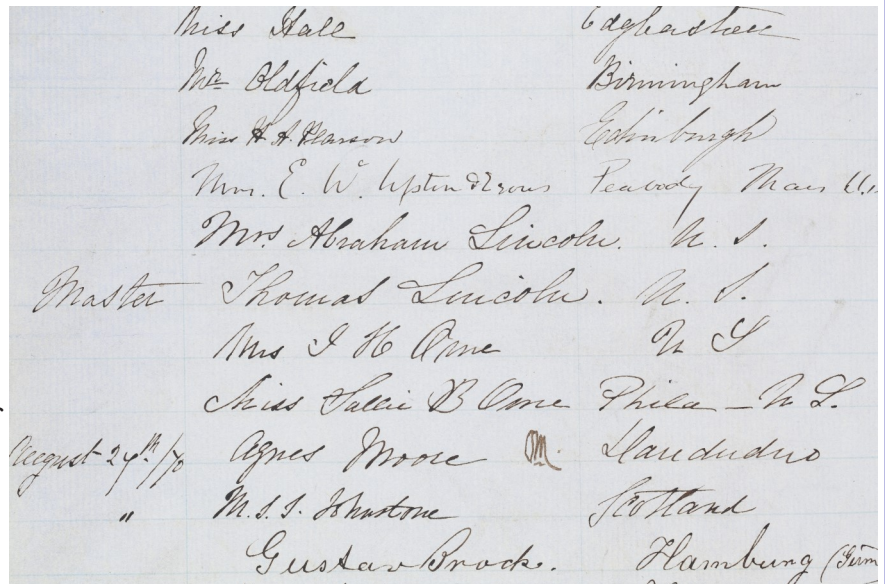 Miss Hall Edgbaston
Mr Oldfield Birmingham
Miss H. A. Pearson Edinburgh
Mrs. E. W. Upton Peabody Mass U.
Mrs Abraham Lincoln. U. S.
Master Thomas Lincoln. U. S.
Mrs J H Orne U S
Miss Sallie B Orne Phila - U S.
August 27th/70 Agnes Moore M. Llandudno
" M. S. S. Johnstone Scotland
Gustav Brock. Hamburg (Germ